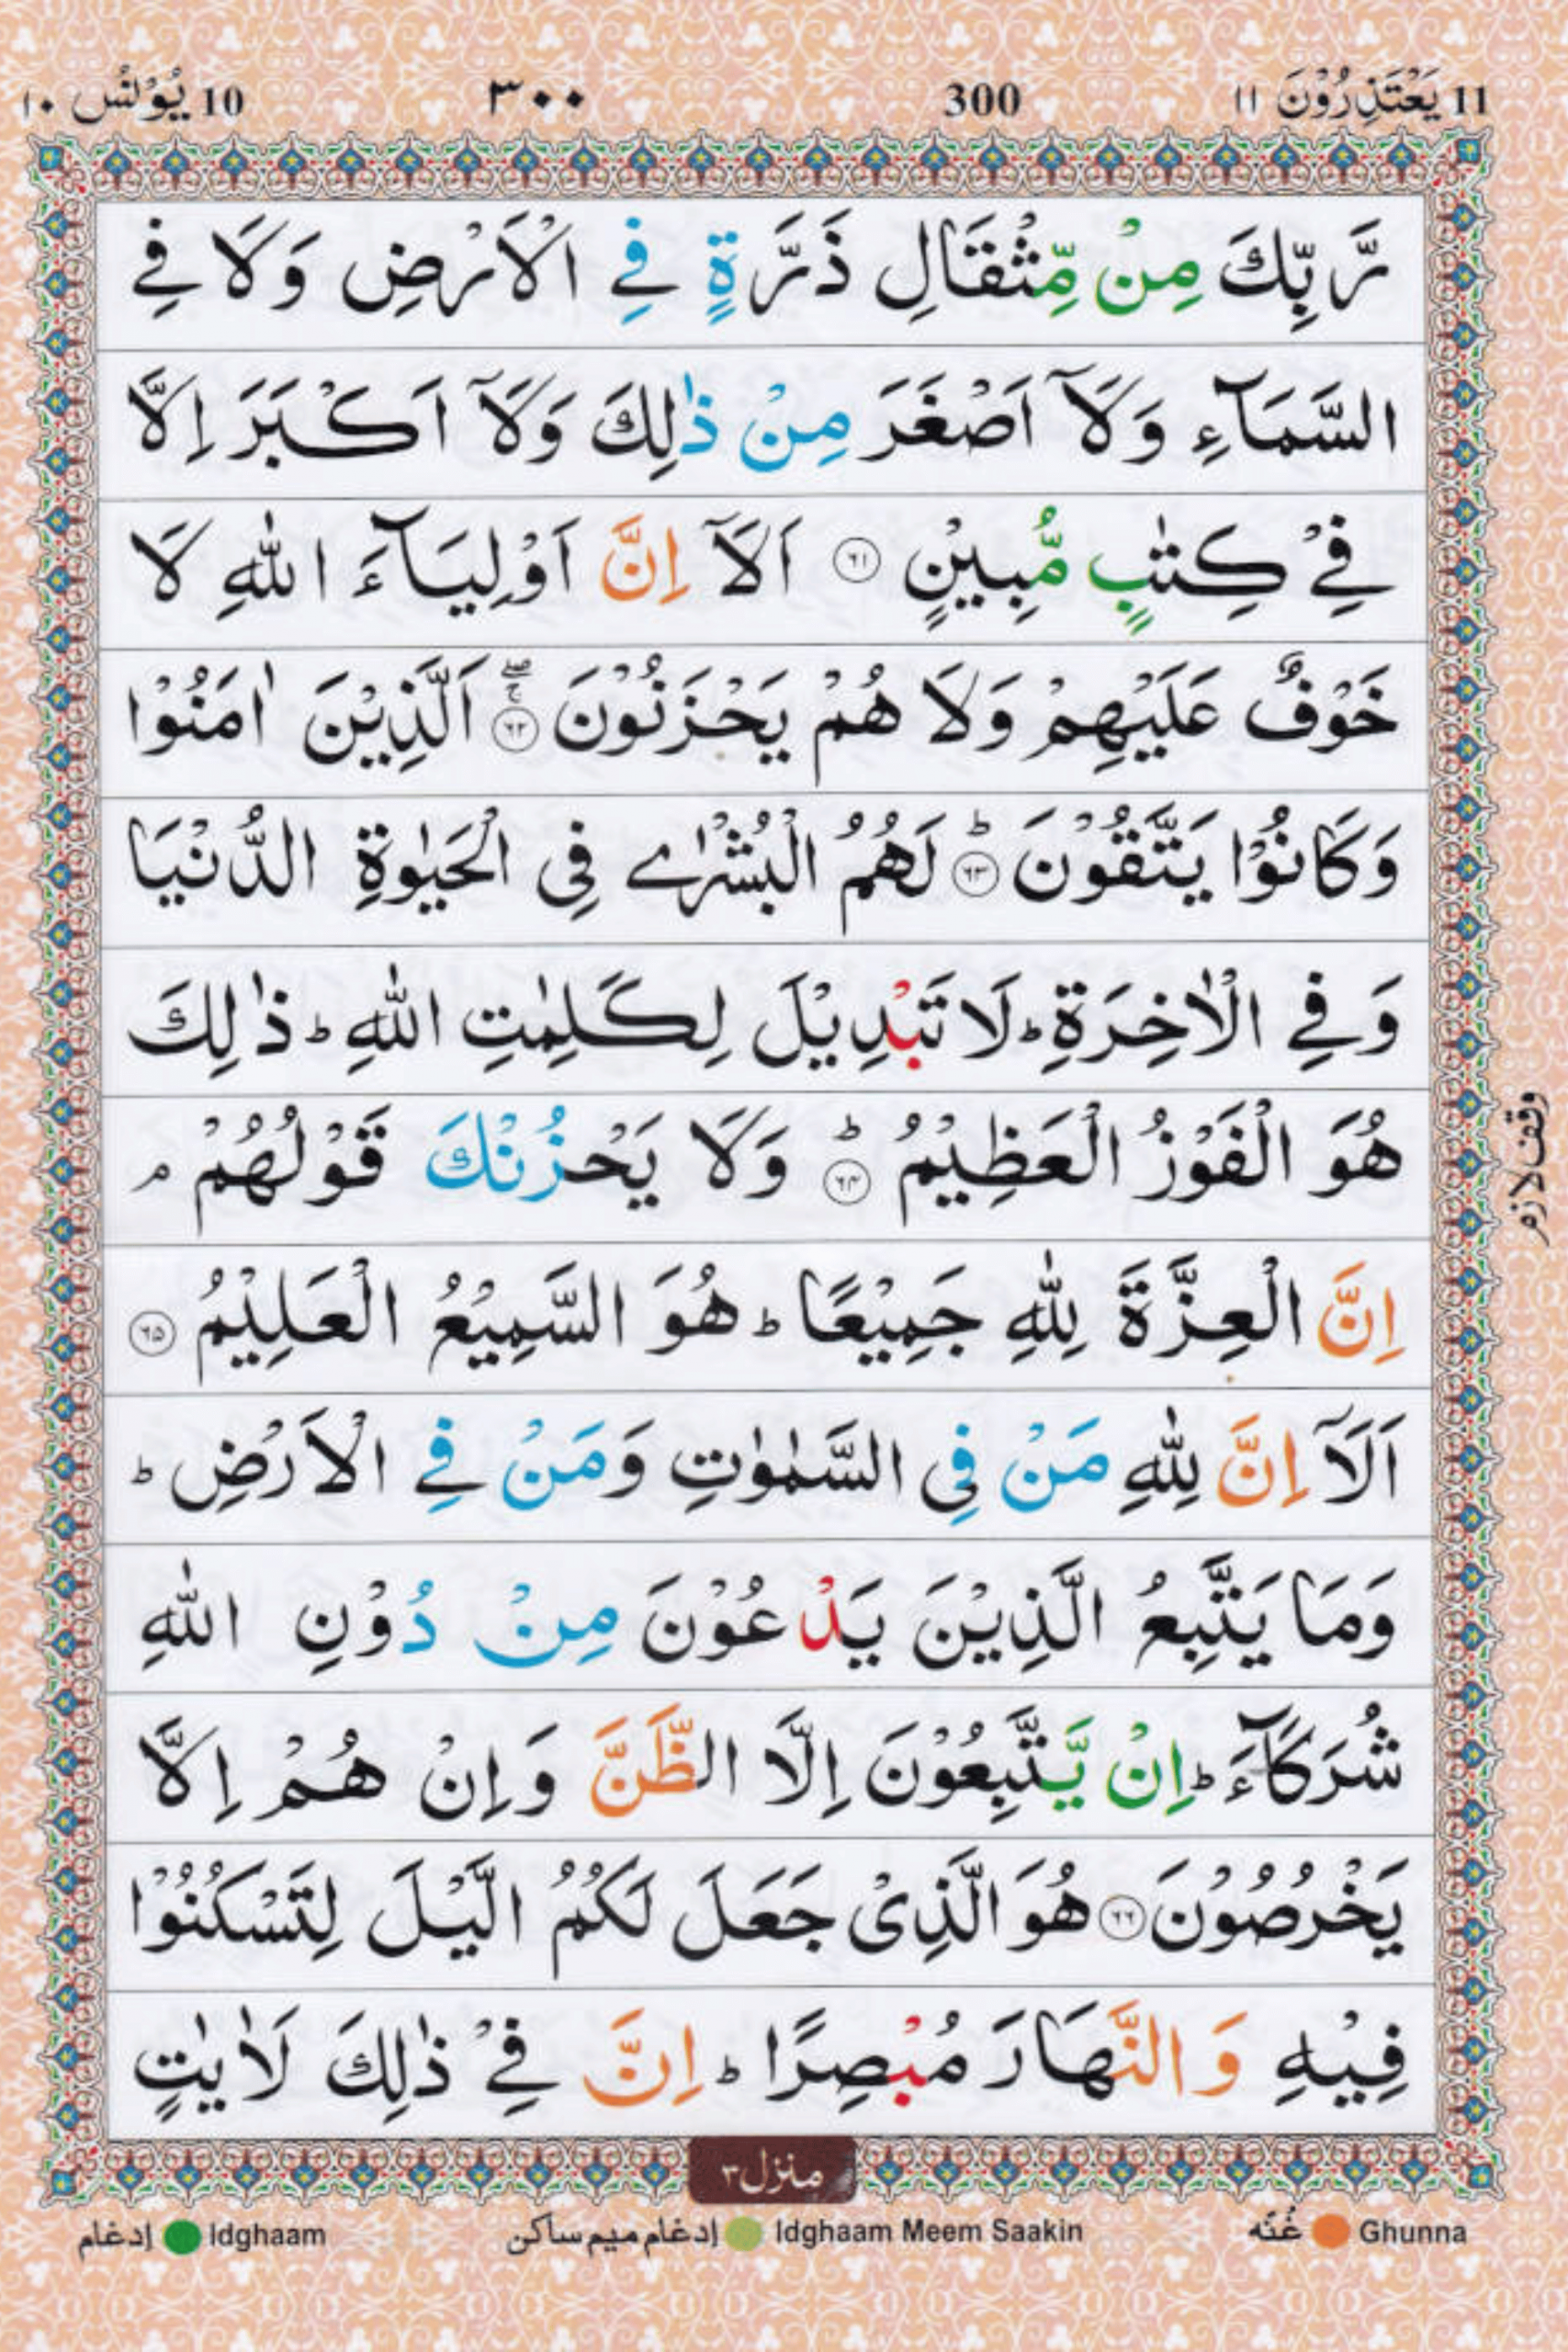 11 يَعْتَذِرُوْنَ ١١ 300 ٣٠٠ 10 يُوْنُس ١٠
رَّبِّكَ مِنْ مِّثْقَالِ ذَرَّةٍ فِي الْاَرْضِ وَلَا فِي
السَّمَآءِ وَلَآ اَصْغَرَ مِنْ ذٰلِكَ وَلَآ اَكْبَرَ اِلَّا
فِيْ كِتٰبٍ مُّبِيْنٍ ۝٦١ اَلَآ اِنَّ اَوْلِيَآءَ اللّٰهِ لَا
خَوْفٌ عَلَيْهِمْ وَلَا هُمْ يَحْزَنُوْنَ ۝٦٢ۚۖ اَلَّذِيْنَ اٰمَنُوْا
وَكَانُوْا يَتَّقُوْنَ ۝٦٣ؕ لَهُمُ الْبُشْرٰے فِي الْحَيٰوةِ الدُّنْيَا
وَفِي الْاٰخِرَةِ ؕ لَا تَبْدِيْلَ لِكَلِمٰتِ اللّٰهِ ؕ ذٰلِكَ
هُوَ الْفَوْزُ الْعَظِيْمُ ۝٦٤ؕ وَلَا يَحْزُنْكَ قَوْلُهُمْ ۘ
اِنَّ الْعِزَّةَ لِلّٰهِ جَمِيْعًا ؕ هُوَ السَّمِيْعُ الْعَلِيْمُ ۝٦٥
اَلَآ اِنَّ لِلّٰهِ مَنْ فِي السَّمٰوٰتِ وَمَنْ فِي الْاَرْضِ ؕ
وَمَا يَتَّبِعُ الَّذِيْنَ يَدْعُوْنَ مِنْ دُوْنِ اللّٰهِ
شُرَكَآءَ ؕ اِنْ يَّتَّبِعُوْنَ اِلَّا الظَّنَّ وَاِنْ هُمْ اِلَّا
يَخْرُصُوْنَ ۝٦٦ هُوَ الَّذِيْ جَعَلَ لَكُمُ الَّيْلَ لِتَسْكُنُوْا
فِيْهِ وَالنَّهَارَ مُبْصِرًا ؕ اِنَّ فِيْ ذٰلِكَ لَاٰيٰتٍ
وقف لازم
منزل ٣
Ghunna غُنّه Idghaam Meem Saakin إدغام ميم ساكن Idghaam إدغام